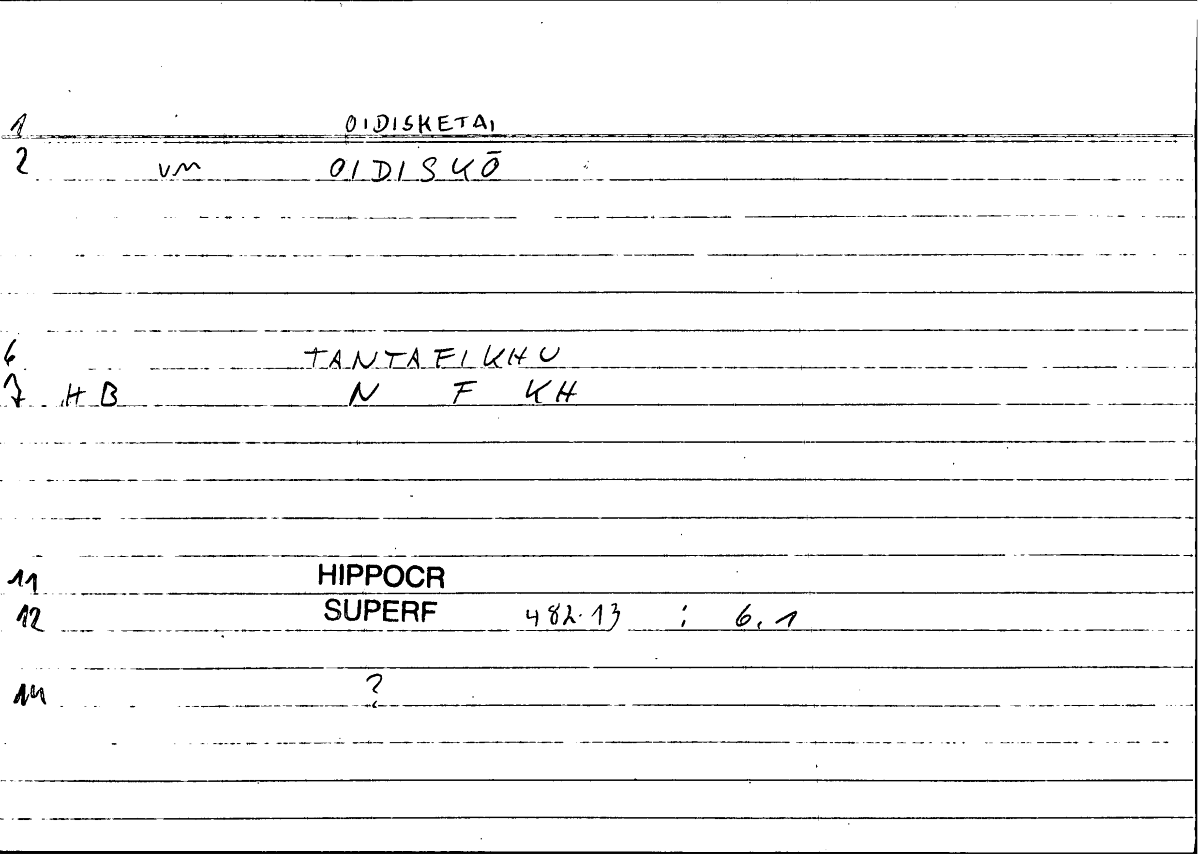 1 OIDISKETAI
2 vm OIDISKŌ
6 TANTAFIKHU
7 HB N F KH
11 HIPPOCR
12 SUPERF 482.13 ; 6.1
14 ?